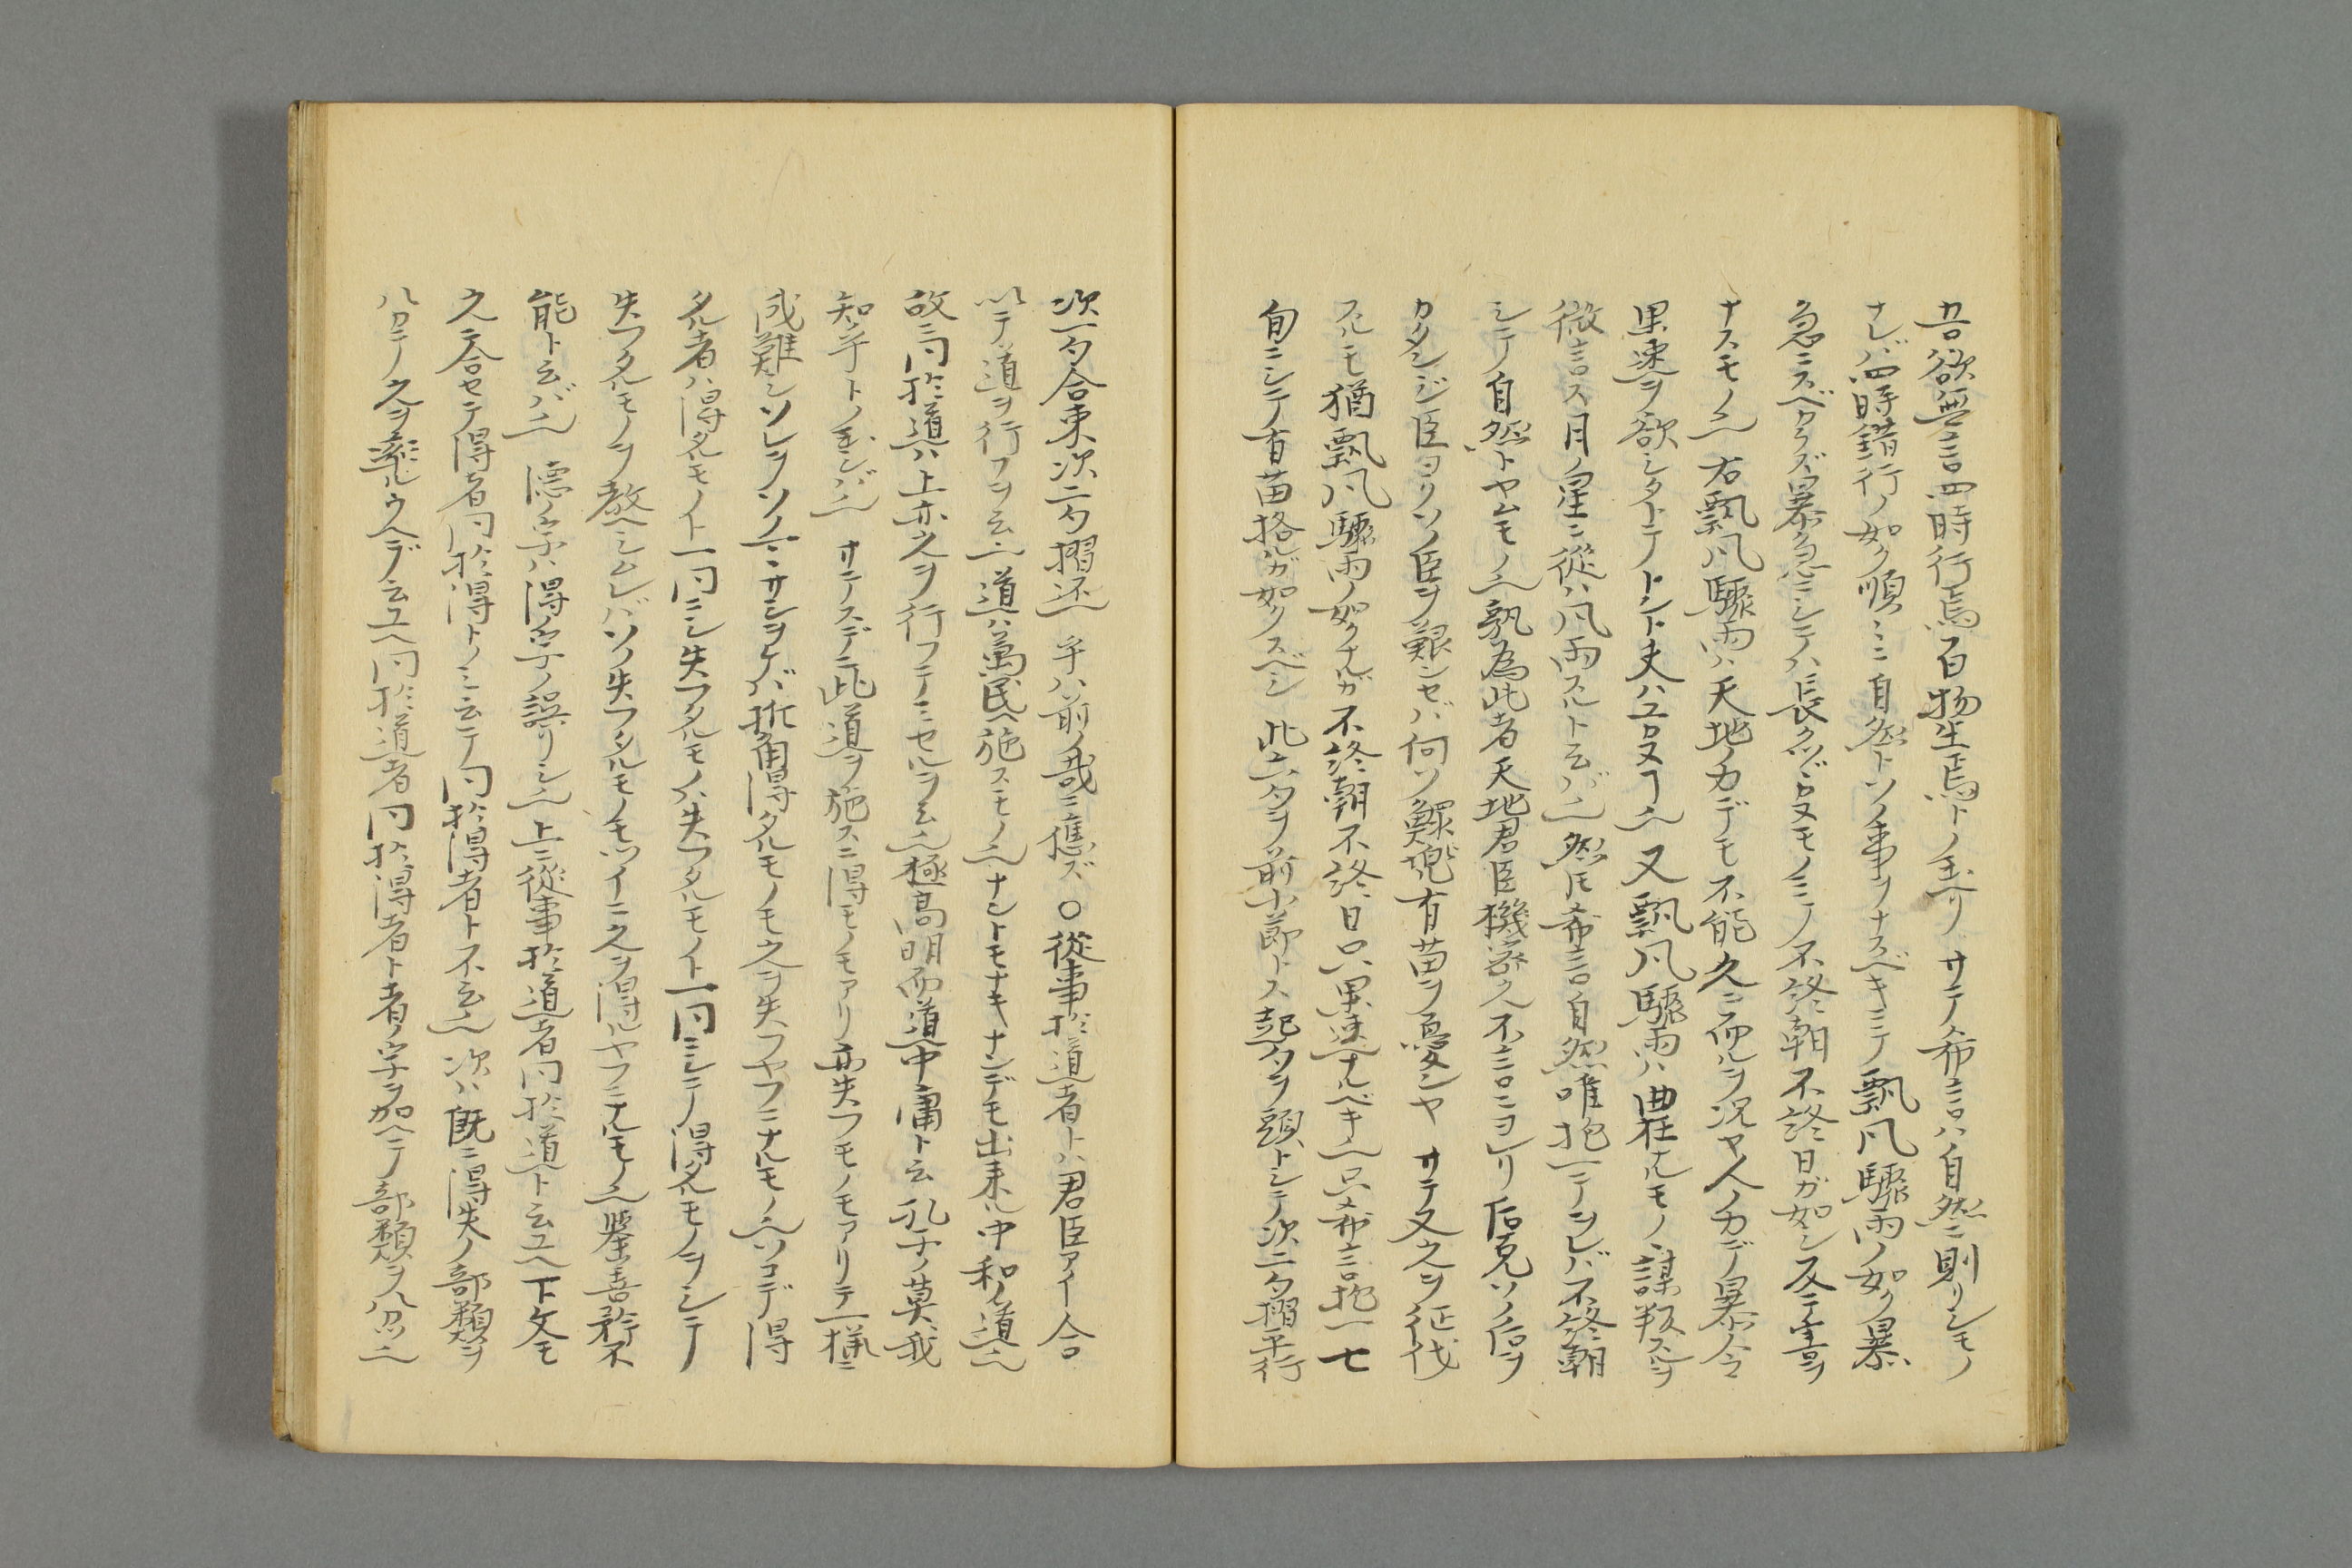 吾欲無言四時行焉百物生焉トノ玉ヘリ サテ希言ハ自然ニ則リシモノ
ナレバ四時錯行ノ如ク順ミニ自然トソノ事ヲナスベキニテ飄風驟雨ノ如ク暴
急ニスベクラズ暴急ニシテハ長クツヾカヌモノニテ不終朝不終日ガ如シ反テ害ヲ
ナスモノ也 右飄風驟雨ハ天地ノ力デモ不能久ニ而ルヲ况ヤ人ノ力デ暴令
果速ヲ欲シタトテトント夫ハユカヌヿ也 又飄風驟雨ハ曲狂ナルモノヽ謀叛スルヲ
微言ス月ノ星ニ從ハ風雨スルト云バ也 然ドモ希言自然唯抱一テヲレバ不終朝
シテ自然トヤムモノ也孰為此者天地君臣機密久不言ニヨレリ 后克ソノ后ヲ
カタンジ臣ヨリソノ臣ヲ艱ンセバ何ソ鯀驩兜有苗ヲ憂ンヤ サテ又之ヲ征伐
スルモ猶飄風驟雨ノ如クナルガ不終朝不終日只果速ナルベキ也只希言抱一七
旬ニシテ有苗格ルガ如クスベシ 此六夕ヲ前小節トス起夕ヲ頭トシテ次二夕摺平行
次一夕合束次二夕摺还也 乎ハ前ノ哉ニ應ズ 〇從事於道者トハ君臣アイ合
以テ道ヲ行フヲ云也 道ハ萬民ヘ施スモノ也ナントモナキナンデモ出来ル中和ノ道也
故ニ同於道ハ上亦之ヲ行フテミセルヲ云也極高明而道中庸ト云孔子ノ莫我
知乎トノ玉シバ也 サテスデニ此道ヲ施スニ得モノモアリ亦失フモノモアリテ一様ニ
成難シソレヲソノマヽニサシヲケバ折角得タルモノモ之ヲ失フヤフニナルモノ也ソコデ得
タル者ハ得タルモノト一同ニシ失フタルモノハ失フタルモノト一同ニシテ得タルモノヲシテ
失フタルモノヲ教ヘシムレバソノ失フタルモノモツイニ之ヲ得ルヤフニナルモノ也挙善矜不
能ト云バ也 德ノ字ハ得ノ字ノ誤リシ也上ニ從事於道者同於道ト云ユヘ下文モ
之ニ合セテ得者同於得トノミ云テ同於得者ト不云也 次ハ既ニ得失ノ部類ヲ
ハカニテ之ヲ率ルウヘデ云ユヘ同於道者同於得者ト者ノ字ヲ加ヘテ部類ヲ分ツ也